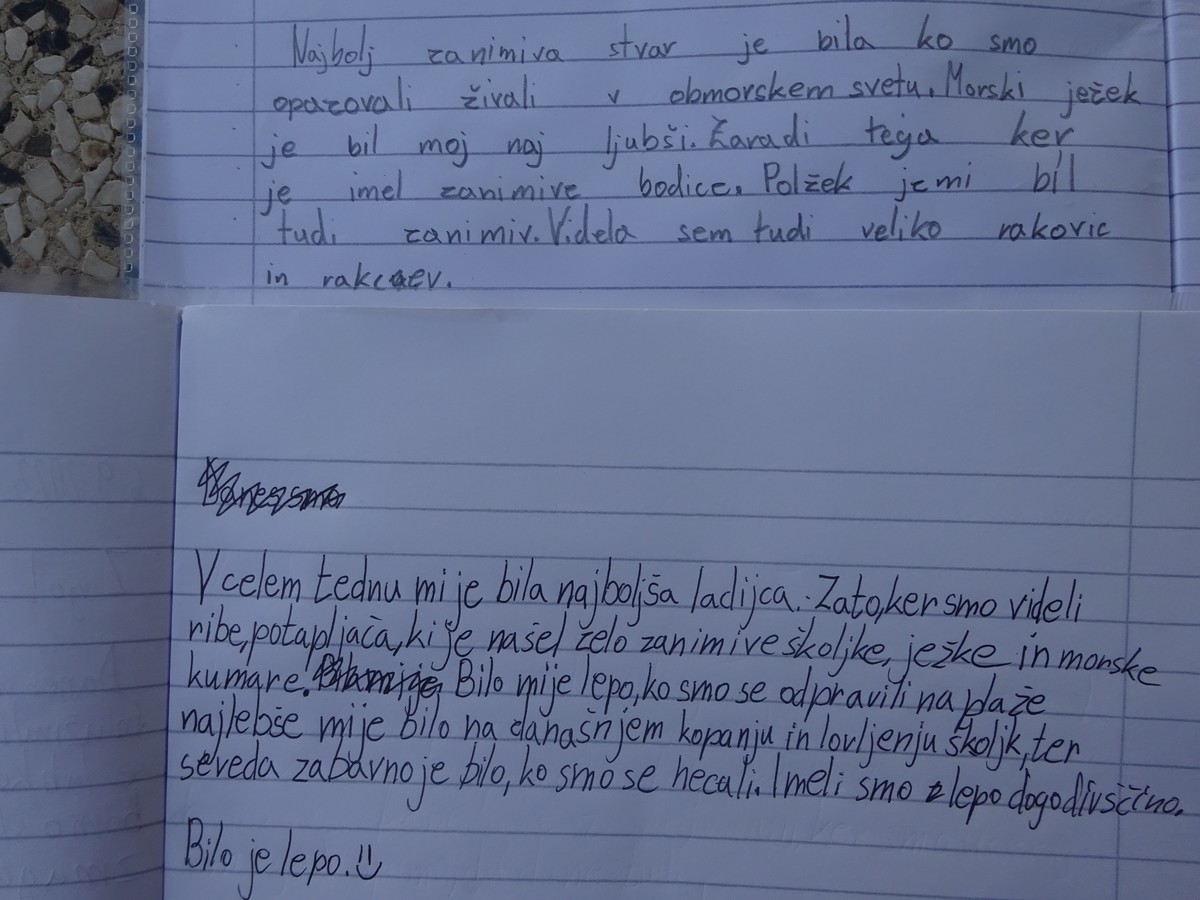 Najbolj zanimiva stvar je bila ko smo
opazovali živali v obmorskem svetu. Morski ježek
je bil moj naj ljubši. Zaradi tega ker
je imel zanimive bodice. Polžek je mi bil
tudi zanimiv. Videla sem tudi veliko rakovic
in
V celem tednu mi je bila najboljša ladijca. Zato,ker smo videli
ribe, potapljača, ki je našel zelo zanimive školjke, ježke in morske
kumare. Bilo mi je lepo, ko smo se odpravili na plaže
najlebše mi je bilo na današnjem kopanju in lovljenju školjk, ter
seveda zabavno je bilo, ko smo se hecali. Imeli smo lepo dogodivščino.
Bilo je lepo.